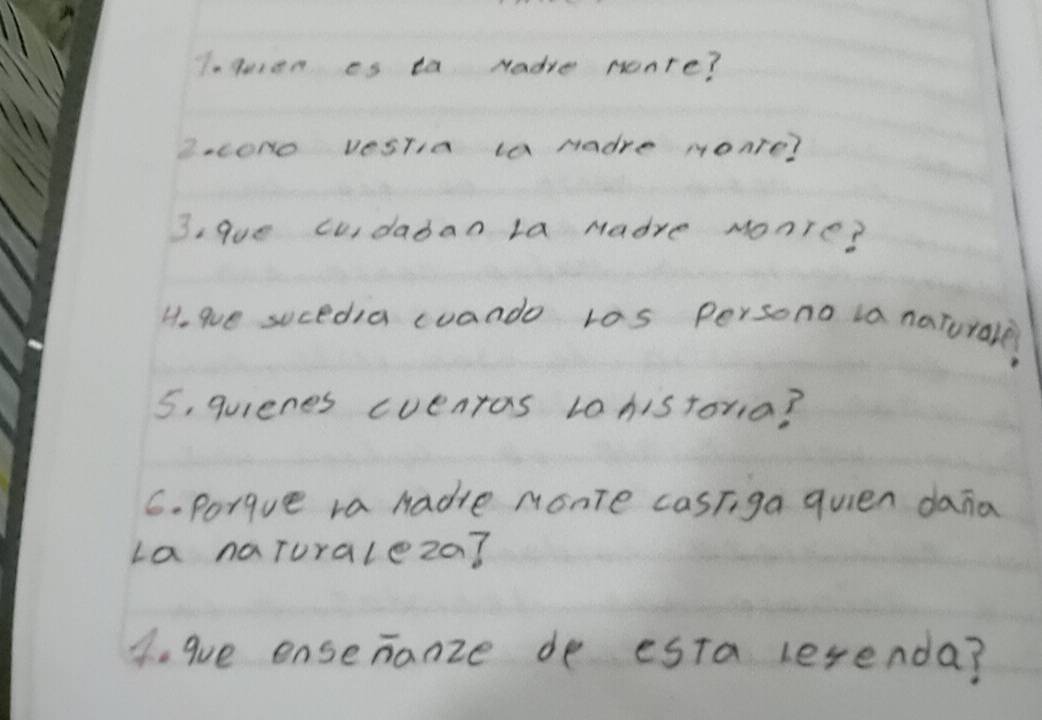 1. quien es la Madre Monte?
2. como vestia la Madre Monte?
3. que cuidaban la Madre Monte?
4. que sucedia cuando las persono la naturale?
5. quienes cuentas la historia?
6. Porque la Madre Monte castiga quien daña
la naturaleza?
7. que enseñanze de esta leyenda?